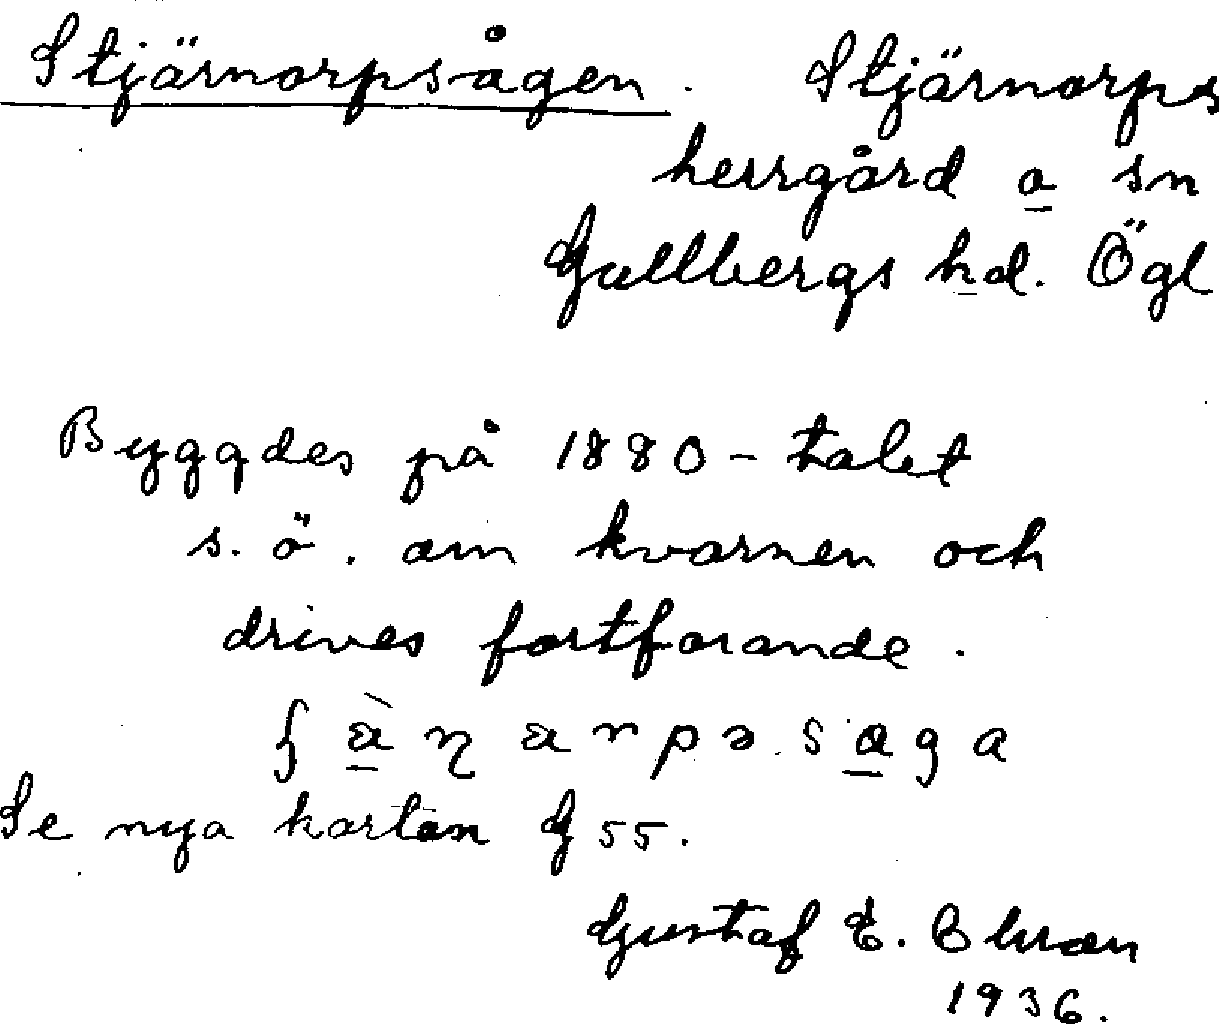 Stjärnorpsågen. Stjärnorps
herrgård o sn
Gullbergs hd. Ögl
Byggdes på 1880-talet
s.ö. om kvarnen och
drives fortfarande.
Se nya kartan G 55.
Gustaf E.
1936.